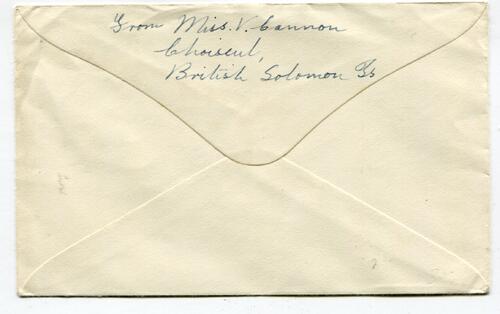 From Miss. V. Cannon
Choiseul,
British Solomon Is